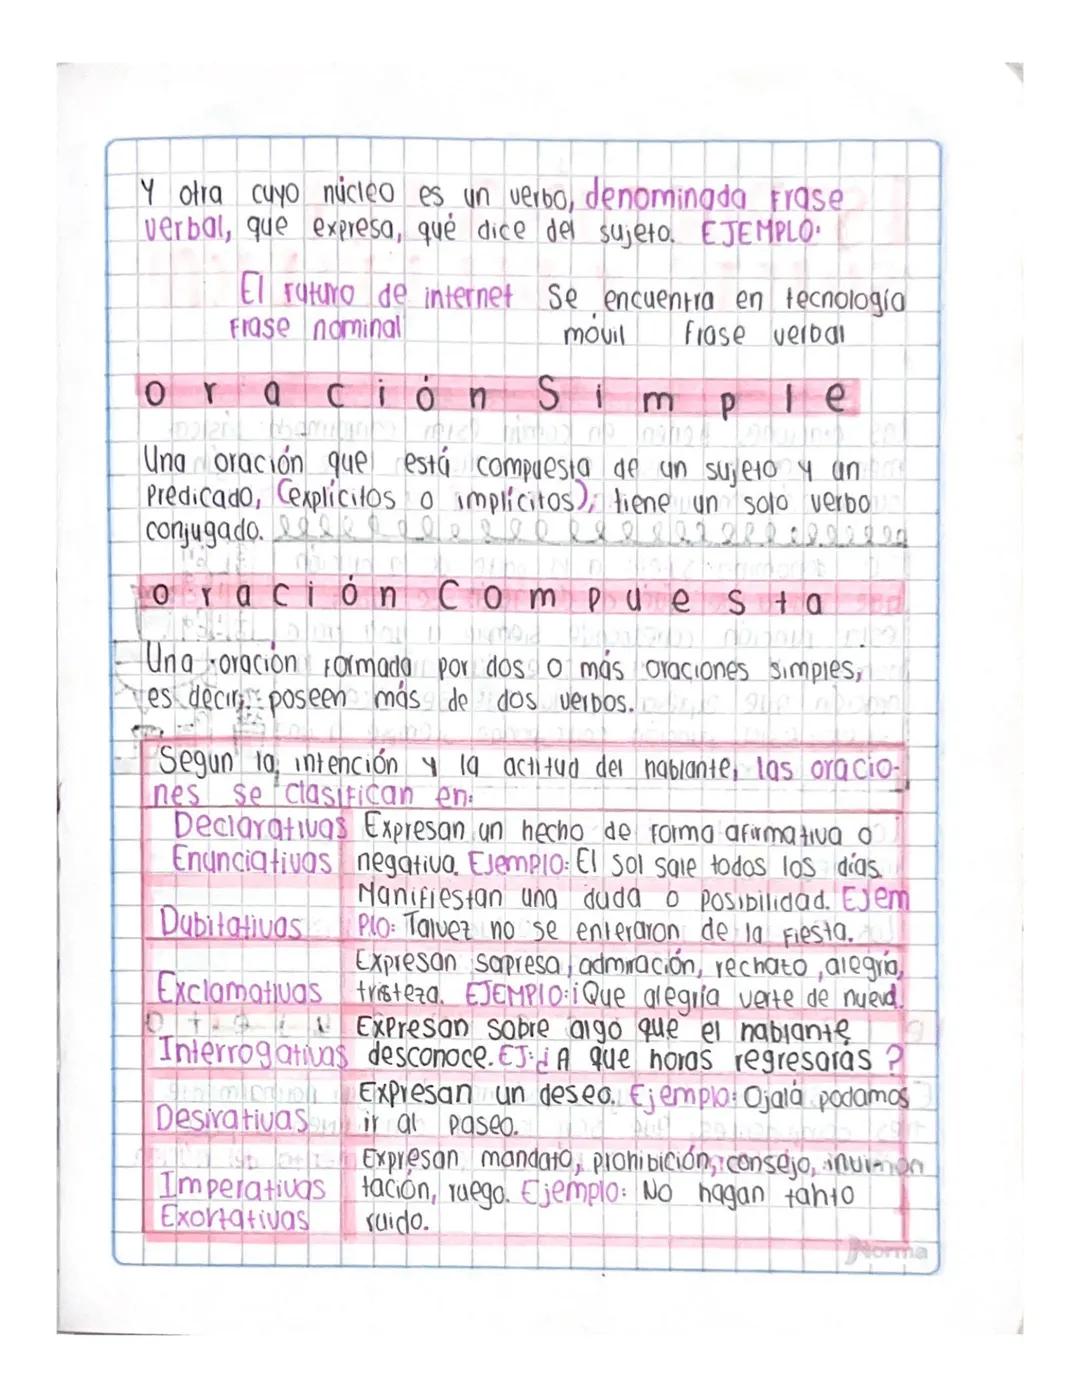 Y otra cuyo núcleo es un verbo, denominada Frase
verbal, que expresa, qué dice del sujeto. EJEMPLO:
El futuro de internet Se encuentra en tecnología
Frase nominal móvil frase verbal
oración Simple
Una oración que está compuesta de un sujeto y un
Predicado, (explícitos o implícitos), tiene un solo verbo
conjugado.
oración Compuesta
Una oración Formada por dos o más oraciones simples,
es decir, poseen más de dos verbos.
Segun la intención y la actitud del hablante, las oracio-
nes se clasifican en:
Declarativas Expresan un hecho de forma afirmativa o
Enunciativas negativa. Ejemplo: El Sol sale todos los días.
Manifiestan una duda o posibilidad. Ejem
Dubitativas Plo: Talvez no se enteraron de la Fiesta.
Expresan sopresa, admiración, rechato, alegría,
Exclamativas tristeza. EJEMPlO: ¡Que alegría verte de nuevo!
Expresan sobre algo que el hablante
Interrogativas desconoce. EJ: ¿A que horas regresaras?
Expresan un deseo. Ejemplo: Ojalá podamos
Desirativas ir al paseo.
Expresan mandato, prohibición, consejo,
Imperativas tación, ruego. Ejemplo: No hagan tanto
Exortativas ruido.
Norma